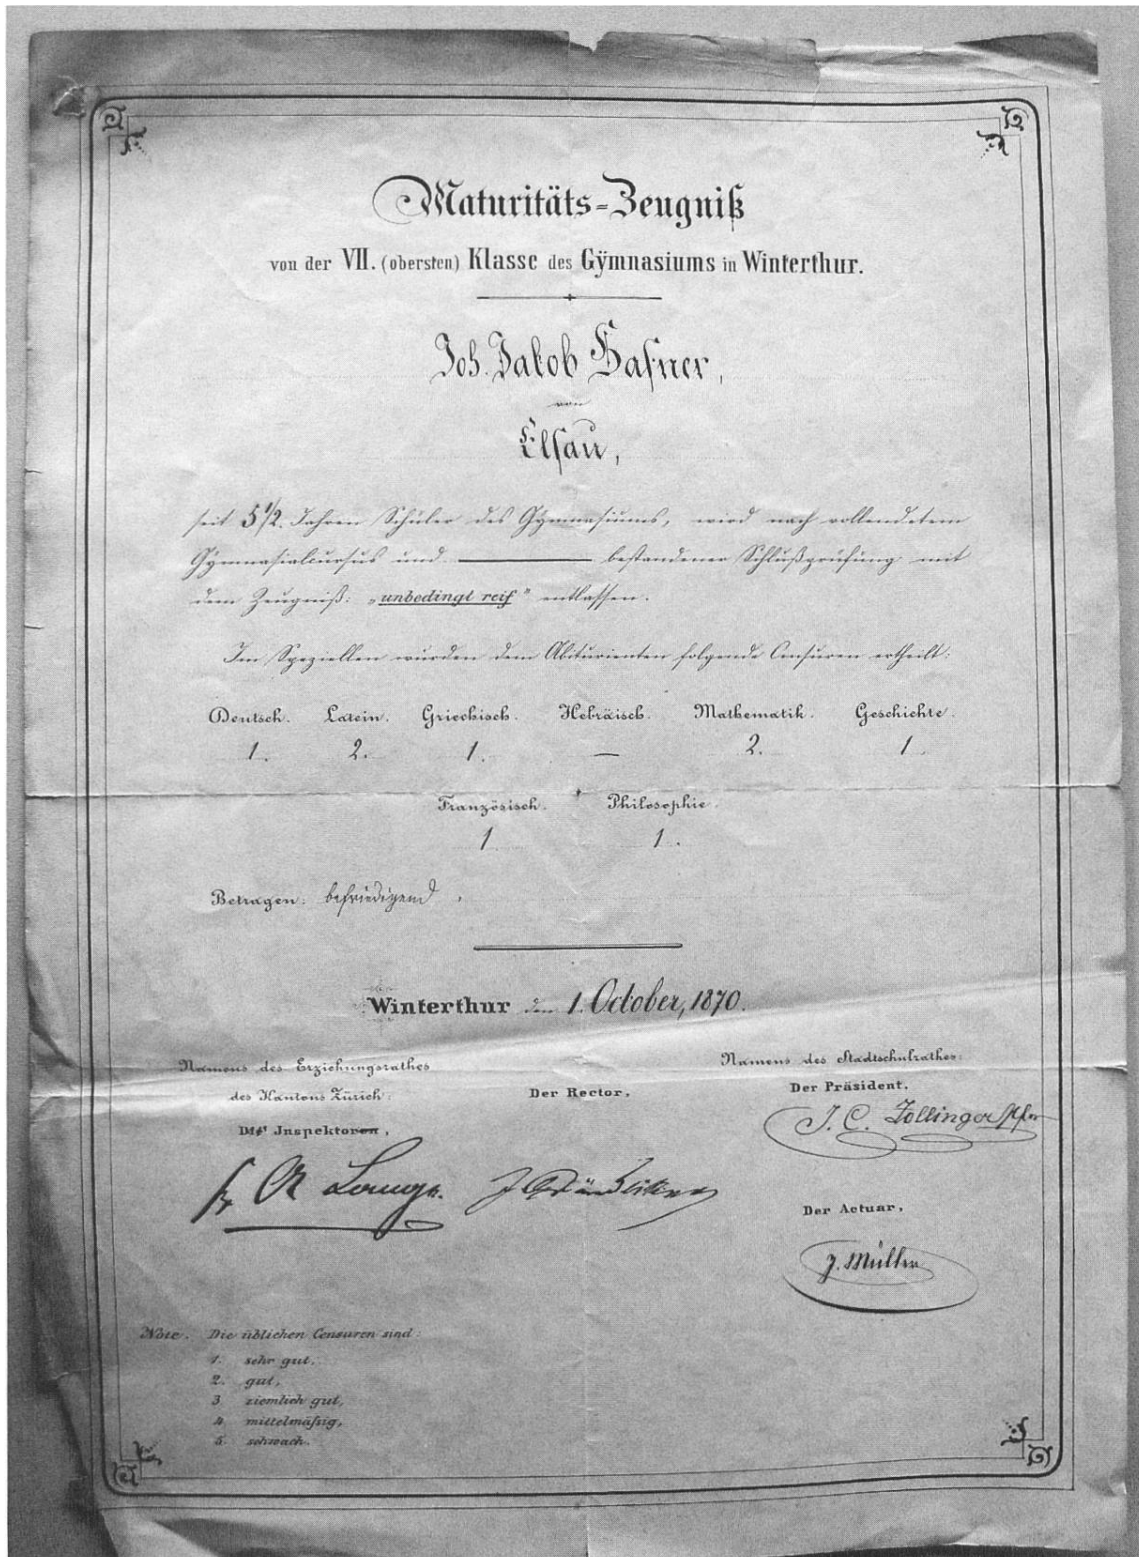 Maturitäts-Zeugniß
von der VII. (obersten) Klasse des Gÿmnasiums in Winterthur.
Joh. Jakob Hafner,
von
Elsau,
seit 5 1/2. Jahren Schüler des Gymnasiums, wird nach vollendetem
Gymnasialcursus und ——— bestandener Schlußprüfung mit
dem Zeugniß: „unbedingt reif" entlassen.
Im Speziellen wurden dem Abiturienten folgende Censuren ertheilt:
Deutsch. Latein. Griechisch. Hebräisch. Mathematik. Geschichte.
1. 2. 1. — 2. 1.
Französisch. Philosophie.
1 1.
Betragen: befriedigend.
Winterthur den 1. October, 1870.
Namens des Erziehungsrathes
des Kantons Zürich:
Inspektoren,
Der Rector,
Namens des Stadtschulrathes:
Der Präsident,
J. C. Zollinger
Der Actuar,
J. Müller
Note. Die üblichen Censuren sind:
1. sehr gut.
2. gut,
3 ziemlich gut,
4 mittelmäßig,
5. schwach.